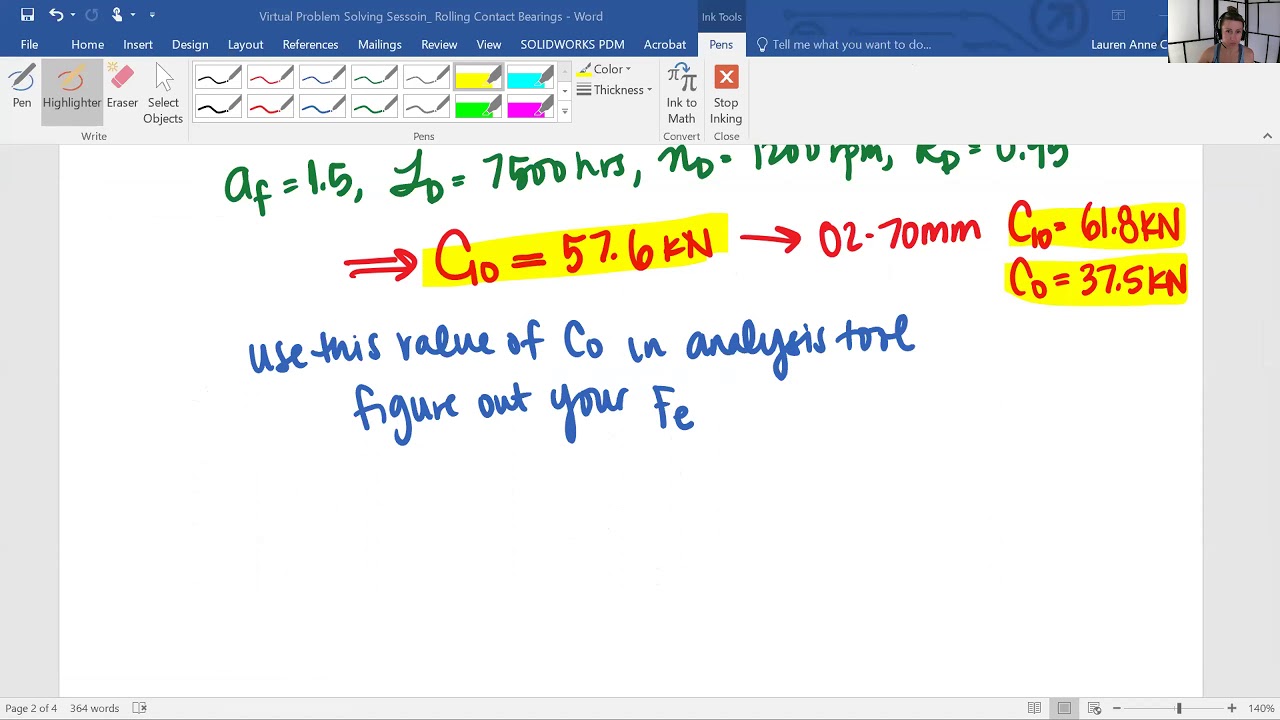 Virtual Problem Solving Sessoin_ Rolling Contact Bearings - Word
Ink Tools
File Home Insert Design Layout References Mailings Review View SOLIDWORKS PDM Acrobat Pens Tell me what you want to do... Lauren Anne C
Pen Highlighter Eraser Select Objects
Color
Thickness
Ink to Math
Stop Inking
Write Pens Convert Close
af = 1.5, LD = 7500 hrs, nD = 1200 rpm, RD = 0.95
⇒ C10 = 57.6 kN → 02-70mm C10 = 61.8 kN
C0 = 37.5 kN
use this value of C0 in analysis tool
figure out your Fe
Page 2 of 4 364 words 140%